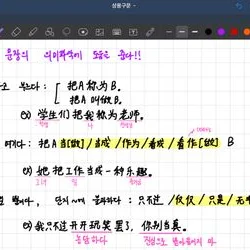 상용구문
문장의 의미파악에 도움을 준다!!
고 부르다 : 把A称为B.
把A叫做B.
예) 学生们把我称为老师.
학생 나 선생님
여기다 : 把A当[做]/当成/作为/看成/看作[做] B
예) 她把工作当成一种乐趣.
그녀 일
뿐이다, 단지 ~에 불과하다 : 只不过/仅仅/只是/无
예) 我只不过开开玩笑罢了, 你别当真.
농담하다 진심으로 받아들이지 마